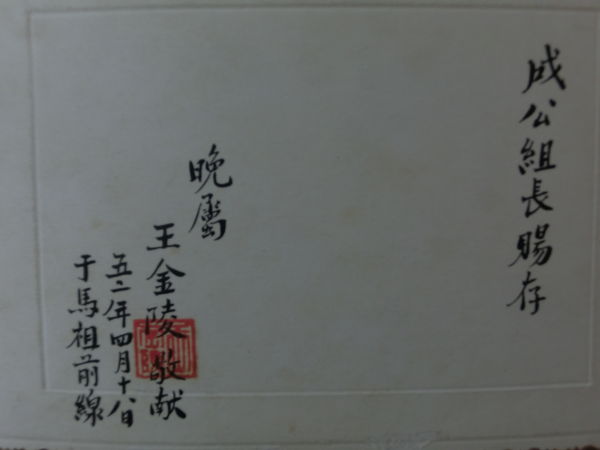 成公組長賜存
晚屬
王金陵敬献
五二年四月十八日
于馬祖前線